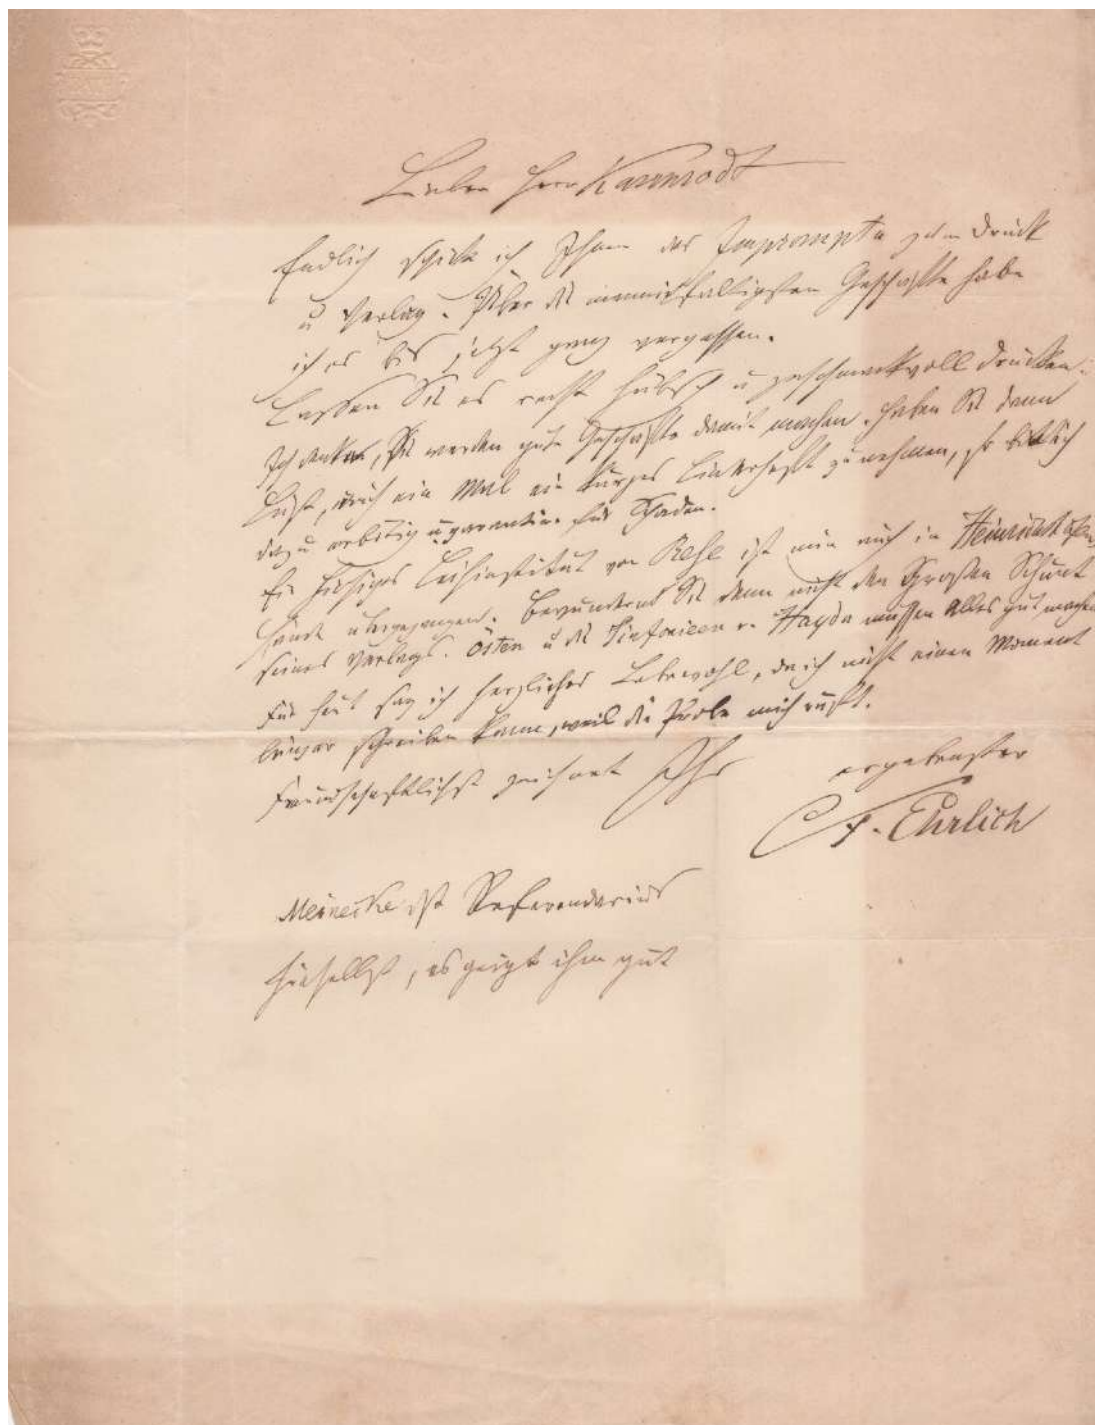 Lieber Herr Karmrodt
Endlich schicke ich Ihnen das Impromptu zum Druck
u Verlag. Über die mannichfaltigsten Geschäfte habe
ich es bis jetzt ganz vergessen.
Lassen Sie es recht hübsch u geschmackvoll drucken.
Ich denke, Sie werden gute Geschäfte damit machen. Haben Sie dann
Lust, auch ein Mal ein kurzes Liederheft zu nehmen, so bin ich
dazu erbötig u garantire für Schaden.
Ein hiesiges Leihinstitut von ist nun auch in Heinrichshofens
Hände übergegangen. Bewundern Sie denn nicht den Grossen
seines Verlags. Östen u die Sinfonieen v. Haydn müssen Alles gut machen
Für heut sag ich herzliches Lebewohl, da ich nicht einen Moment
länger schreiben kann, weil die Probe mich ruft.
Freundschaftlichst zeichnet Ihr ergebenster
F. Ehrlich
Meinecke ist Referendarius
hieselbst, es geht ihm gut